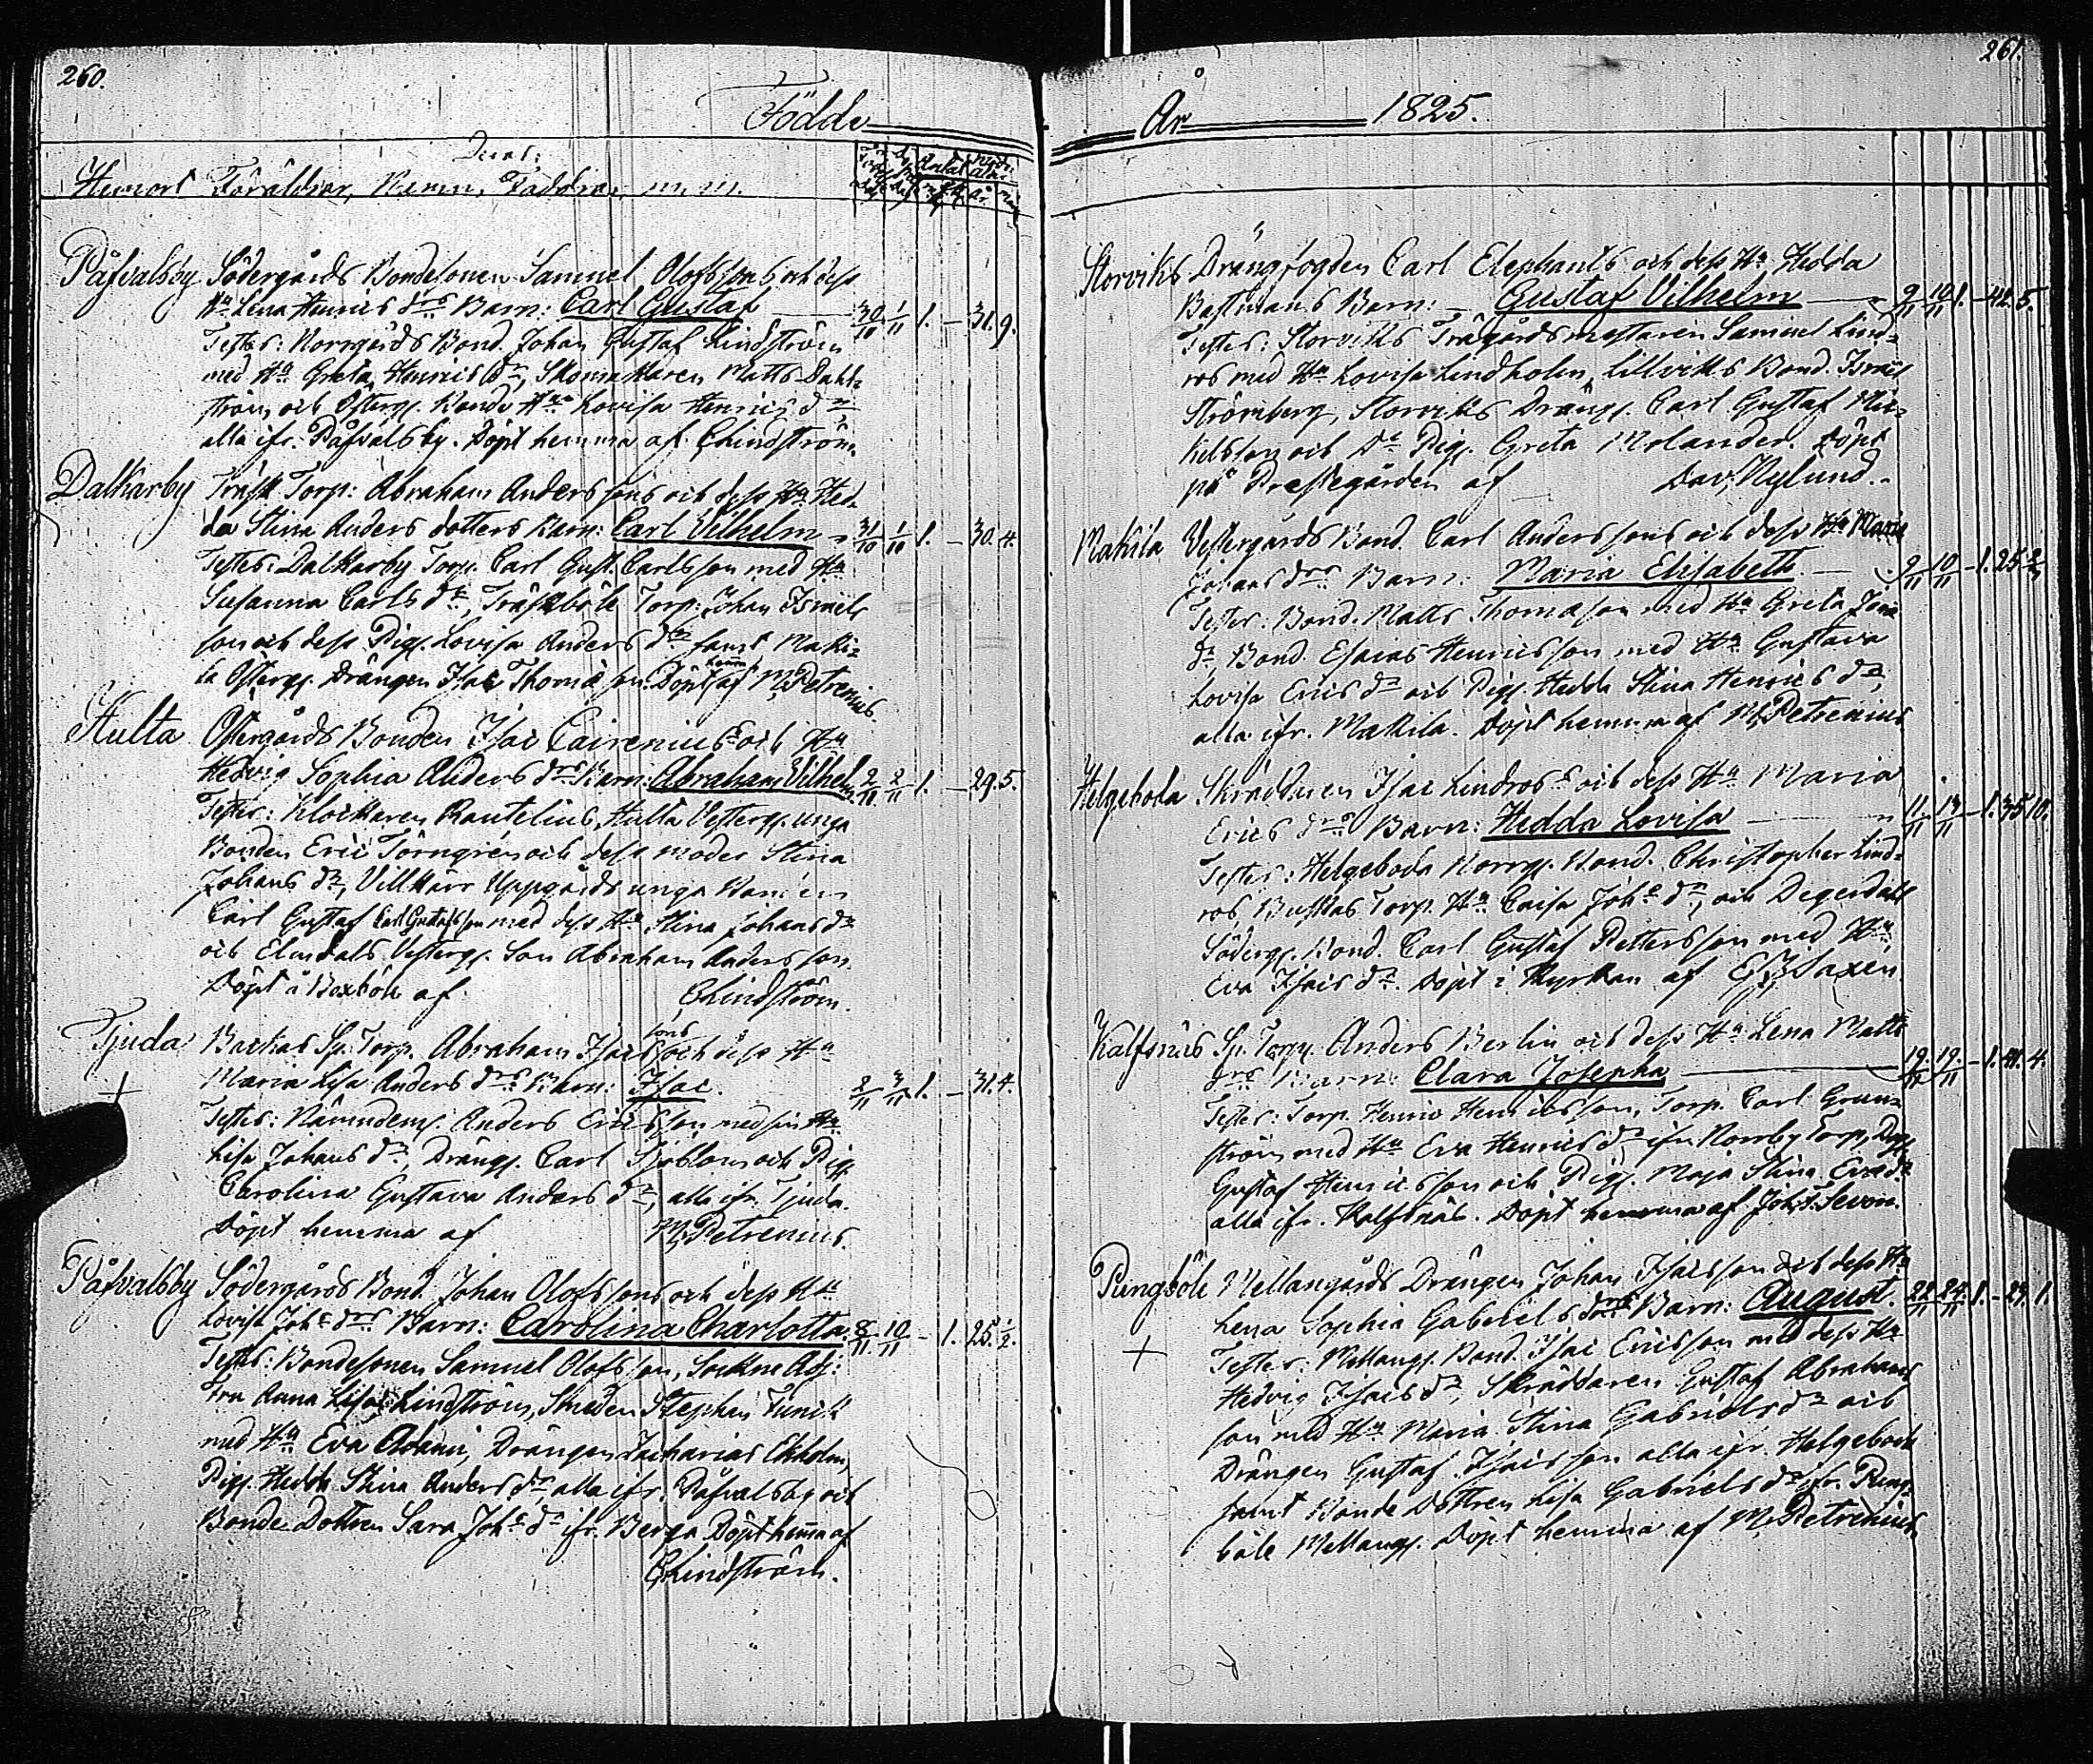 260.
Födde
Deras:
Hemort Föräldrar, Namn, Faddrar, m. m.
Påfvalsby Södergårds Bondesonen Samuel Olofssons, och dess
Hu Lena Henrics drs Barn: Carl Gustaf 30/10 1/11 1. – 31. 9.
Testes: Norrgårds Bond. Johan Gustaf Lindström
med Hu Greta Henrics dr, Skomakaren Matts Dahl=
ström och Österg. Bonde Hun Lovisa Henrics dr
alla ifr. Påfvalsby. Döpt hemma af CLindström.
Dalkarby Träsk Torp: Abraham Anderssons och dess Hu Hed=
da Stina Anders dotters Barn: Carl Vilhelm 31/10 1/11 1. – 30. 4.
Testes: Dalkarby Torp. Carl Gust. Carlsson med Hu
Susanna Carls dr, Träskböle Torp. Johan Isaels
son och dess Pig. Lovisa Anders dr samt Maki=
la Österg. Drängen Isac Thomasson. Döpt hemma af M. Petrenius.
Hulta Östergårds Bonden Isac Cairenius och Hu
Hedvig Sophia Anders drs Barn: Abraham Vilhelm. 2/11 2/11 1. – 29. 5.
Testes: Klockaren Rautelius, Hulta Vesterg. unga
Bonden Eric Törngren och dess moder Stina
Johans dr, Villkärr Uppgårds unga Bonden
Carl Gustaf Carl Gustafsson med dess Hu Stina Johans dr
och Elmdals Vesterg. Son Abraham Andersson.
Döpt å Boxböle af CLindström.
Tjuda Backas Sp. Torp. Abraham Isacssons och dess Hu
Maria Lisa Anders drs Barn: Isac. 2/11 3/11 1. – 31. 4.
Testes: Nämndem. Anders Ericsson med sin Hu
Lisa Johans dr, Dräng. Carl Sjöblom och Pig.
Carolina Gustava Anders dr, alla ifr. Tjuda.
Döpt hemma af M. Petrenius.
Påfvalsby Södergårds Bond. Johan Olofssons och dess Hu
Lovisa Joh: drs Barn: Carolina Charlotta. 8/11 10/11 – 1. 25. 1/2.
Testes: Bondesonen Samuel Olofsson, Sockne Adj:
Fru Anna Lisa Lindström, Smeden Stephan Funik
med Hu Eva Adami, Drängen Zacharias Ekholm,
Pig. Hedda Stina Anders dr, alla ifr. Påfvalsby och
Bonde Dottren Sara Joh: dr ifr. Berga Döpt hemma af
CLindström.
261.
År 1825.
Storviks Drängfogden Carl Elephants och dess Hu Hedda
Bastmans Barn: Gustaf Vilhelm 9/11 10/11 1. – 42. 5.
Testes: Storviks Trägårdsmästaren Samuel Lind=
ros med Hu Lovisa Lindholm, Lillviks Bond. Isac
Strömberg, Storviks Dräng. Carl Gustaf Mic=
kelsson och Do Pig. Greta Molander. Döpt
på Prestegården af Dav. Nylund.
Makila Vestergårds Bond. Carl Anderssons och dess Hu Maria
Johans drs Barn: Maria Elisabeth 9/11 10/11 – 1. 25
Testes: Bond. Matts Thomasson med Hu Greta Joh.
dr, Bond. Esaias Henricsson med Hu Gustava
Lovisa Erics dr och Pig. Hedda Stina Henrics dr,
alla ifr. Makila. Döpt hemma af M. Petrenius
Helgeboda Skräddaren Isac Lindros's och dess Hu Maria
Erics drs Barn: Hedda Lovisa 11/11 13/11 – 1. 35. 10.
Testes: Helgeboda Norrg. Bond. Christopher Lind=
ros, Buskas Torp. Hu Caisa Joh: dr, och Degerdahl
Söderg. Bond. Carl Gustaf Pettersson med Hu
Eva Isacs dr. Döpt i Kyrkan af Saxén
Kalfsnäs Sp. Torp. Anders Berlin och dess Hu Lena Matts
drs Barn: Clara Josepha 19/11 19/11 – 1. 41. 4.
Testes: Torp. Henric Henricsson, Torp. Carl Grun=
ström med Hu Eva Henrics dr ifr. Norrby Torp, Dräng.
Gustaf Henricsson och Pig. Maja Stina Evadr
alla ifr. Kalfsnäs. Döpt hemma af Joh. Sevon.
Pungböle Mellangårds Drängen Johan Isacsson och dess Hu
Lena Sophia Gabriels drs Barn: August. 22/11 24/11 1. – 29. 1.
Testes: Mellang. Bond. Isac Ericsson med dess Hu
Hedvig Isacs dr, Skräddaren Gustaf Abrahams
son med Hu Maria Stina Gabriels dr och
Drängen Gustaf Isacsson alla ifr. Helgeboda
samt Bonde Dottren Lisa Gabriels dr ifr. Pung=
böle Mellang. Döpt hemma af M. Petrenius